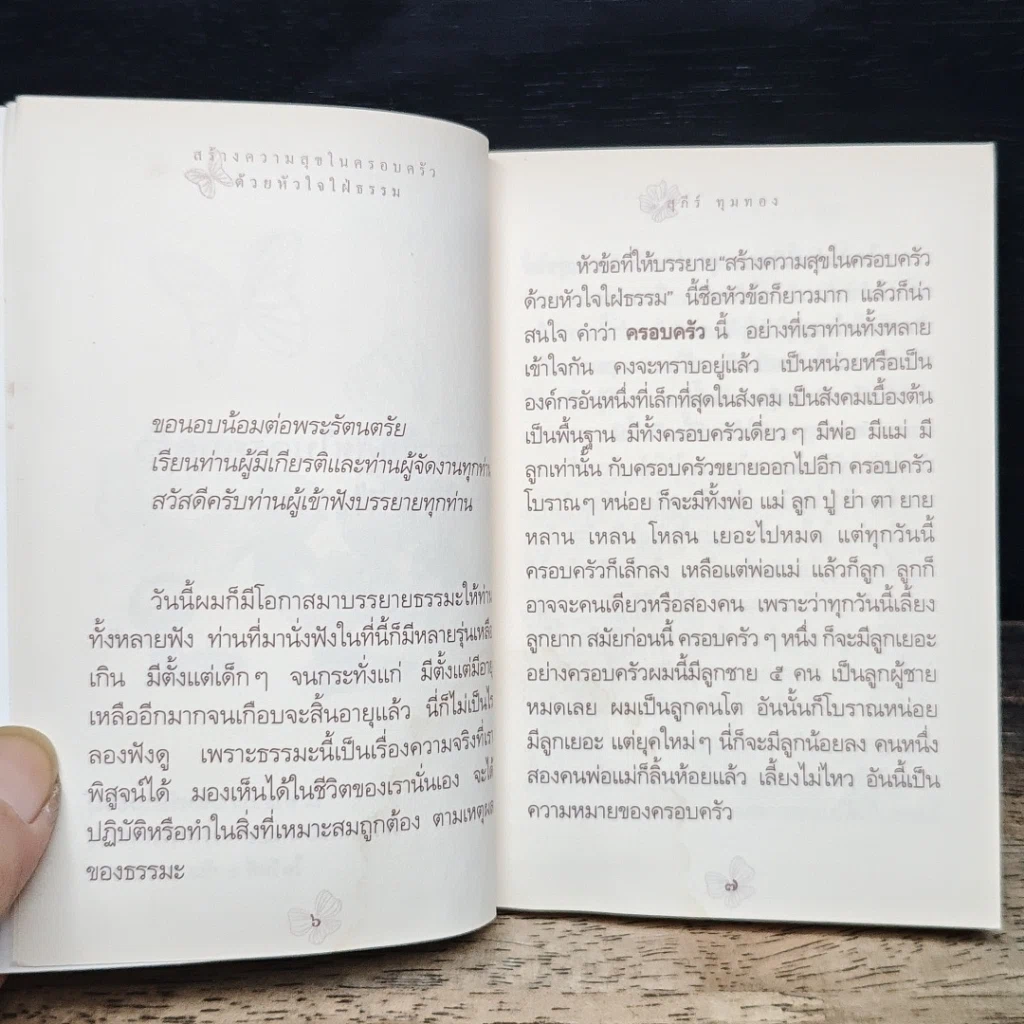 สร้างความสุขในครอบครัว
ด้วยหัวใจใฝ่ธรรม
ขอนอบน้อมต่อพระรัตนตรัย
เรียนท่านผู้มีเกียรติและท่านผู้จัดงานทุกท่าน
สวัสดีครับท่านผู้เข้าฟังบรรยายทุกท่าน
วันนี้ผมก็มีโอกาสมาบรรยายธรรมะให้ท่าน
ทั้งหลายฟัง ท่านที่มานั่งฟังในที่นี้ก็มีหลายรุ่นเหลือ
เกิน มีตั้งแต่เด็กๆ จนกระทั่งแก่ มีตั้งแต่มีอายุ
เหลืออีกมากจนเกือบจะสิ้นอายุแล้ว นี่ก็ไม่เป็นไร
ลองฟังดู เพราะธรรมะนี้เป็นเรื่องความจริงที่เรา
พิสูจน์ได้ มองเห็นได้ในชีวิตของเรานั่นเอง จะได้
ปฏิบัติหรือทำในสิ่งที่เหมาะสมถูกต้อง ตามเหตุผล
ของธรรมะ
๖
สุภีร์ ทุมทอง
หัวข้อที่ให้บรรยาย "สร้างความสุขในครอบครัว
ด้วยหัวใจใฝ่ธรรม" นี้ชื่อหัวข้อก็ยาวมาก แล้วก็น่า
สนใจ คำว่า ครอบครัว นี้ อย่างที่เราท่านทั้งหลาย
เข้าใจกัน คงจะทราบอยู่แล้ว เป็นหน่วยหรือเป็น
องค์กรอันหนึ่งที่เล็กที่สุดในสังคม เป็นสังคมเบื้องต้น
เป็นพื้นฐาน มีทั้งครอบครัวเดี่ยวๆ มีพ่อ มีแม่ มี
ลูกเท่านั้น กับครอบครัวขยายออกไปอีก ครอบครัว
โบราณๆ หน่อย ก็จะมีทั้งพ่อ แม่ ลูก ปู่ ย่า ตา ยาย
หลาน เหลน โหลน เยอะไปหมด แต่ทุกวันนี้
ครอบครัวก็เล็กลง เหลือแต่พ่อแม่ แล้วก็ลูก ลูกก็
อาจจะคนเดียวหรือสองคน เพราะว่าทุกวันนี้เลี้ยง
ลูกยาก สมัยก่อนนี้ ครอบครัวๆ หนึ่ง ก็จะมีลูกเยอะ
อย่างครอบครัวผมนี้มีลูกชาย ๕ คน เป็นลูกผู้ชาย
หมดเลย ผมเป็นลูกคนโต อันนั้นก็โบราณหน่อย
มีลูกเยอะ แต่ยุคใหม่ๆ นี่ก็จะมีลูกน้อยลง คนหนึ่ง
สองคนพ่อแม่ก็ลิ้นห้อยแล้ว เลี้ยงไม่ไหว อันนี้เป็น
ความหมายของครอบครัว
๗